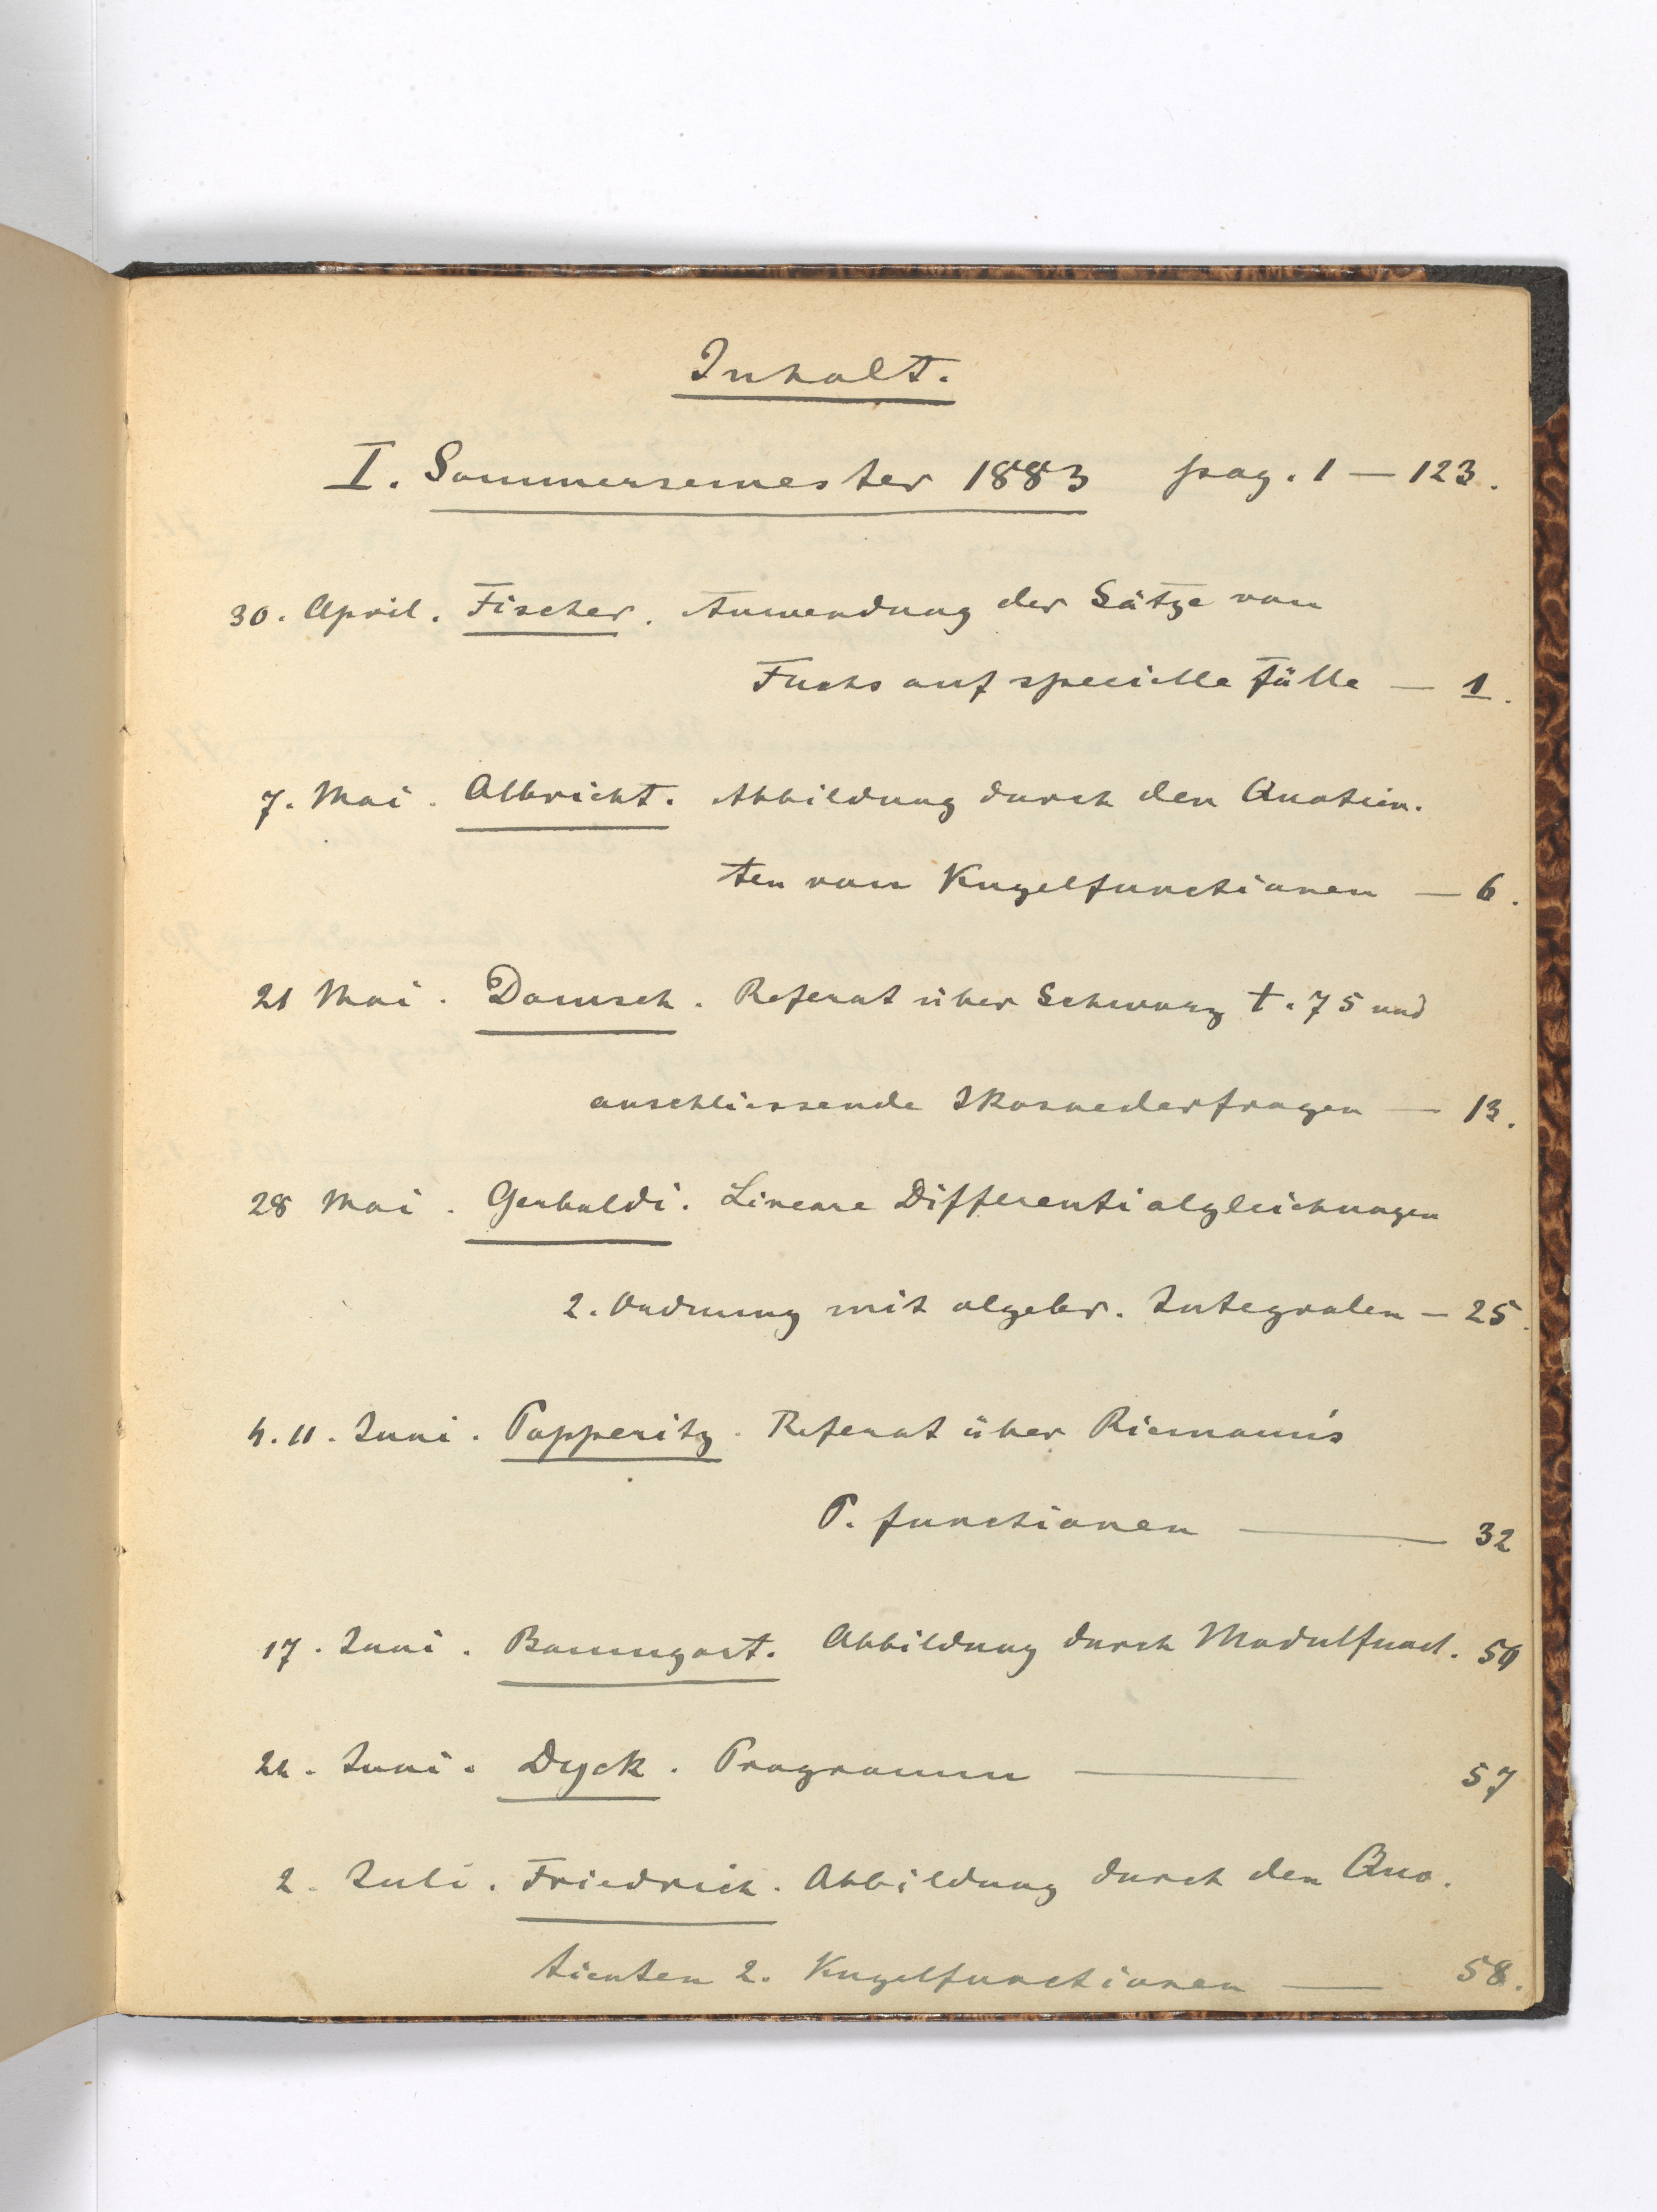 Inhalt.
I. Sommersemester 1883 pag. 1 — 123.
30. April. Fischer. Anwendung der Sätze von
Fuchs auf specielle Fälle — 1.
7. Mai. Albricht. Abbildung durch den Quotien.
ten von Kugelfunctionen — 6.
21 Mai. Domsch. Referat über Schwarz t. 75 und
anschliessende Ikosaederfragen — 13.
28 Mai. Gerbaldi. Lineare Differentialgleichungen
2. Ordnung mit algebr. Integralen — 25.
4. 11. Juni. Papperitz. Referat über Riemann's
P. functionen — 32
17. Juni. Baumgart. Abbildung durch Modulfunct.
Juni. Dyck. Programm — 57
2. Juli. Friedrich. Abbildung durch den Quo.
tienten 2. Kugelfunctionen — 58.